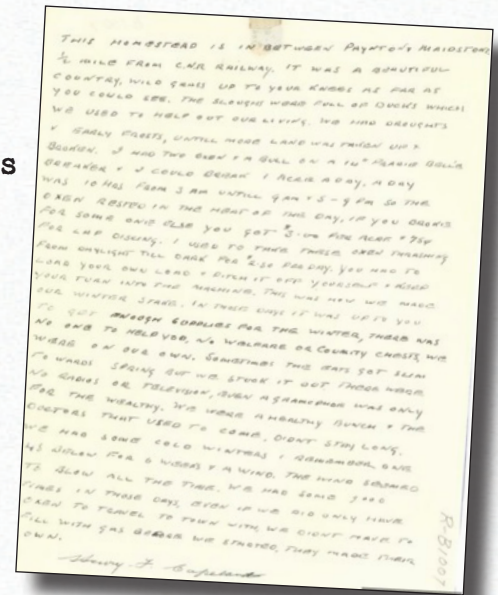 THIS HOMESTEAD IS IN BETWEEN PAYNTON & MAIDSTONE
½ MILE FROM C.N.R RAILWAY. IT WAS A BEAUTIFUL
COUNTRY, WILD GRASS UP TO YOUR KNEES AS FAR AS
YOU COULD SEE. THE SLOUGHS WERE FULL OF DUCKS WHICH
WE USED TO HELP OUT OUR LIVING. WE HAD DROUGHTS
& EARLY FROSTS, UNTILL MORE LAND WAS TAKEN UP &
BROKEN. I HAD TWO OXEN & A BULL ON A 14"
BREAKER & I COULD BREAK 1 ACRE A DAY. A DAY
WAS 10 HRS FROM 3 AM UNTILL 9 AM & 5 - 9 PM SO THE
OXEN RESTED IN THE HEAT OF THE DAY, IF YOU BROKE
FOR SOME ONE ELSE YOU GOT $3.00 PER ACRE & 75¢
FOR LAP DISCING. I USED TO TAKE THESE OXEN THRASHING
FROM DAYLIGHT TILL DARK FOR $2.50 PER DAY. YOU HAD TO
LOAD YOUR OWN LOAD & PITCH IT OFF YOURSELF & KEEP
YOUR TURN INTO THE MACHINE. THIS WAS HOW WE MADE
OUR WINTER STAKE. IN THOSE DAYS IT WAS UP TO YOU
TO GET ENOUGH SUPPLIES FOR THE WINTER, THERE WAS
NO ONE TO HELP YOU, NO WELFARE OR COUNTY CHESTS, WE
WERE ON OUR OWN. SOMETIMES THE EATS GOT SLIM
TOWARDS SPRING BUT WE STUCK IT OUT THERE WERE
NO RADIOS OR TELEVISION, EVEN A GRAMOPHONE WAS ONLY
FOR THE WEALTHY. WE WERE A HEALTHY BUNCH & THE
DOCTORS THAT USED TO COME. DIDNT STAY LONG.
WE HAD SOME COLD WINTERS I REMEMBER ONE
45 BELOW FOR 6 WEEKS & A WIND. THE WIND SEEMED
TO BLOW ALL THE TIME. WE HAD SOME GOOD
TIMES IN THOSE DAYS, EVEN IF WE DID ONLY HAVE
OXEN TO TRAVEL TO TOWN WITH, WE DIDNT HAVE TO
FILL WITH GAS BEFORE WE STARTED, THEY MADE THEIR
OWN.
Henry J. Copeland
R-B1007
s